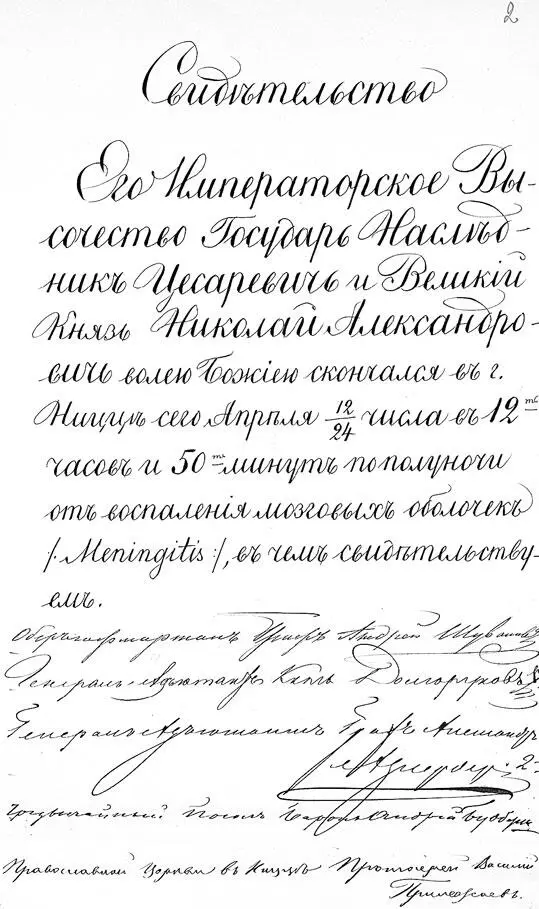 2
Свидѣтельство
Его Императорское Вы-
сочество Государь Наслѣд-
никъ Цесаревичъ и Великій
Князь Николай Александро-
вичъ волею Божіею скончался въ г.
Ниццѣ сего Апрѣля 12/24 числа въ 12ть
часовъ и 50ть минутъ пополуночи
отъ воспаленія мозговыхъ оболочекъ
/: Meningitis :/, въ чемъ свидѣтельству-
емъ.
Оберъ-гофмаршалъ Графъ Андрей Шуваловъ
Генералъ-Адъютантъ Князь Долгоруковъ
Генералъ Адъютантъ Графъ Александръ
Адлербергъ 2й
Чрезвычайный Посолъ Баронъ Андрей Будбергъ
Православной Церкви въ Ниццѣ Протоіерей Василій
Прилежаевъ.